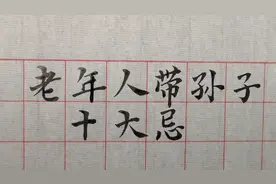 老年人带孙子
十大忌